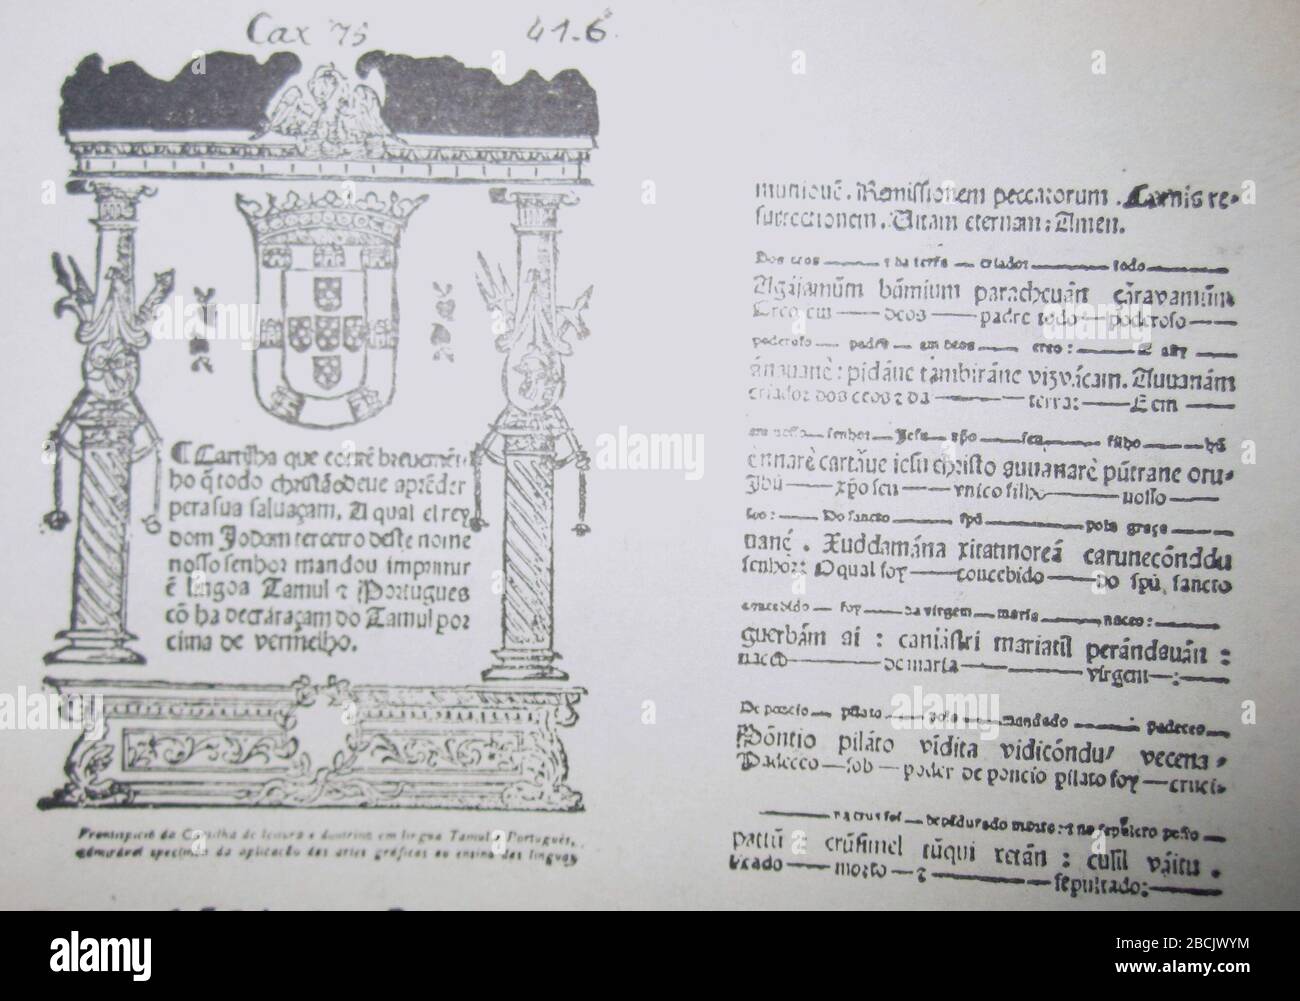 Cax 75 41.6
¶ Cartilha que contẽ brevemẽte
ho q̃ todo christão deve aprẽder
pera sua salvaçam. A qual el rey
dom Joham terceiro deste nome
nosso senhor mandou imprimir
ẽ lingoa Tamul ꞇ Portugues
cõ ha decraraçam do Tamul por
cima de vermelho.
Frontispicio da Cartilha de leitura e doutrina em lingua Tamul e Português,
admirável specimen da aplicação das artes gráficas ao ensino das linguas
munionẽ. Remissionem peccatorum. Carnis re-
surrectionem. Vitam eternam: Amen.
Dos ceos ꞇ da terra criador todo
Agajamũm bũmium paracheuãn çãravamũm
Creo em deos padre todo poderoso
poderoso padre em deos creo: E assy
pidãve tãmbirãne vizvãcam. Avvanãm
criador dos ceos ꞇ da terra: E em
em nosso senhor Jesu xpõ seu filho hũ
ennarẽ cartãve iesu christo avvanarẽ pũtrane oru-
Jhũ xp̃o seu vnico filho nosso
seo: Do sancto spũ pola graça
nanẽ. Xuddamãna carunecõnddu
senhor: O qual foy concebido do spũ sancto
concebido foy da virgem maria naceo:
mariatil perãndavãn:
naceo de maria virgem:
De poncio pilato polo mandado padeceo
Põntio pilãto vidita vidicõndu vecena-
Padeceo sob poder de poncio pilato foy cruci-
na cruz foi dependurado morto: ꞇ na sepultura posto
pattũ: cũsil vãitu.
ficado morto ꞇ sepultado:
alamy
Image ID: 2BCJWYM
www.alamy.com